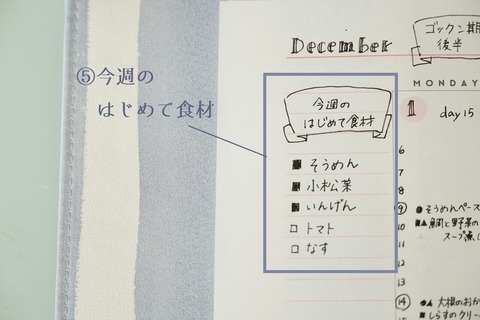 ⑤今週の
はじめて食材
December
ゴックン期
後半
MONDAY
今週の
はじめて食材
そうめん
小松菜
いんげん
トマト
なす
1
day 15
6
7
8
9
●そうめんペース
10
■▲鯛と野菜の
11
スープ煮
12
13
14
●▲大根のおか
15
■しらすのクリー